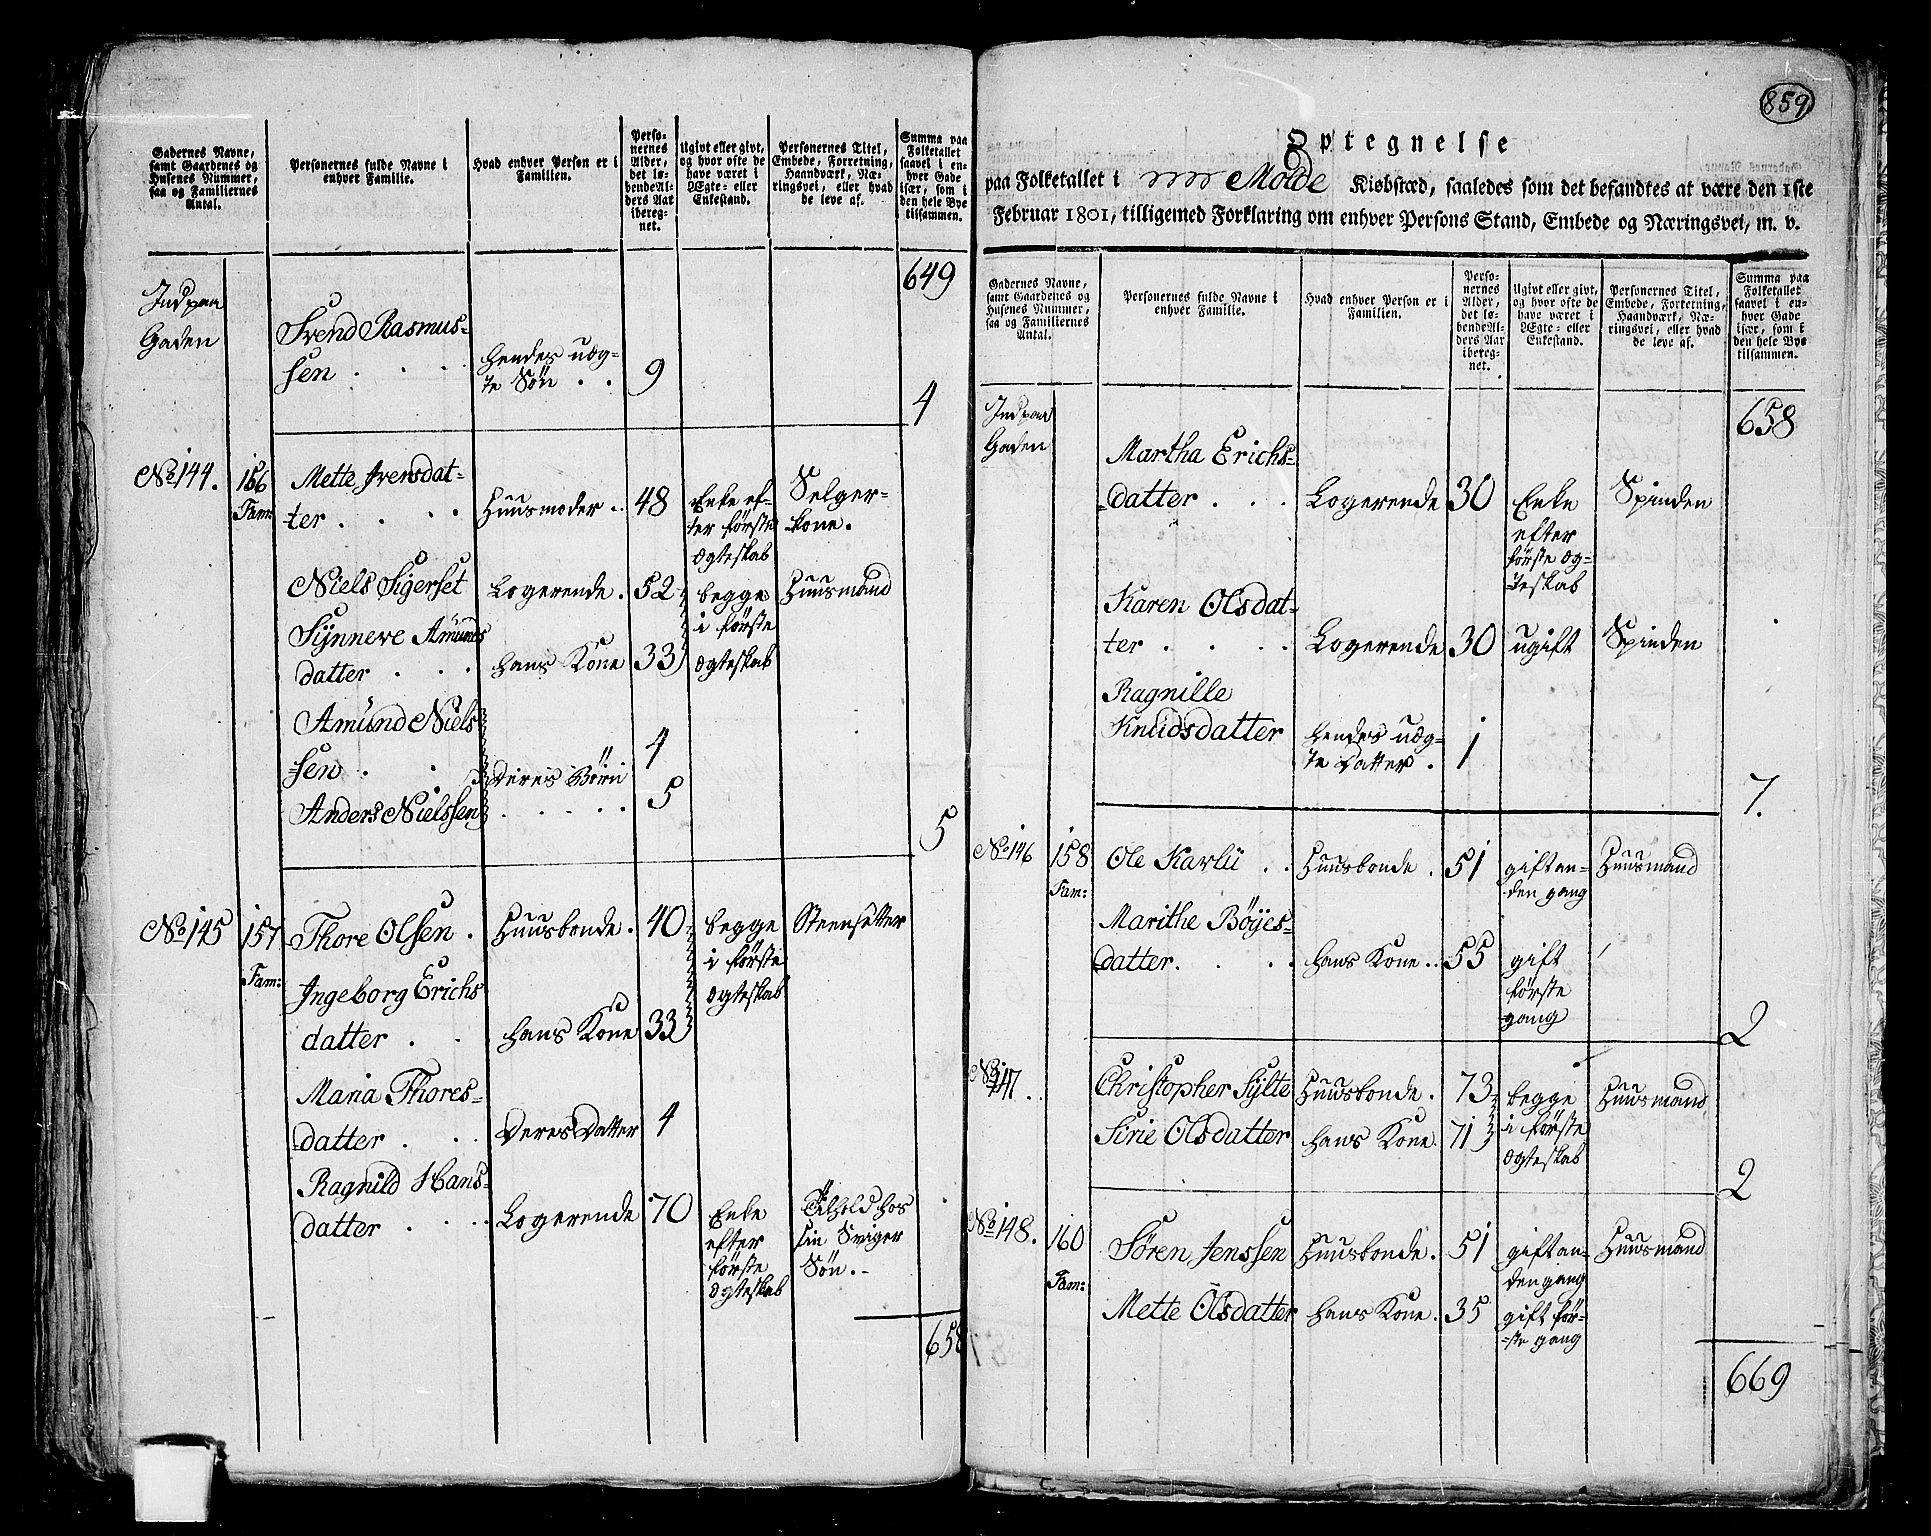 Gadernes Navne,
samt Gaardenes og
Husenes Nummer,
saa og Familiernes
Antal.
Personernes fulde Navne i
enhver Familie.
Hvad enhver Person er i
Familien.
Perso-
nernes
Alder,
det lø-
bende Al-
ders Aar
ibereg-
net.
Ugivt eller givt,
og hvor ofte de
have været i
Ægte- eller
Enkestand.
Personernes Titel,
Embede, Forretning,
Haandværk, Næ-
ringsvei, eller hvad
de leve af.
Summa paa
Folketallet
saavel i en-
hver Gade
især, som i
den hele Bye
tilsammen.
649
Indpaa
Gaden
Svend Rasmus-
sen . . .
hendes uæg-
te Søn . .
9
4
No 144.
156
Fam:
Mette Iversdat-
ter . . .
Huusmoder ..
48
Enke ef-
ter første
Ægteskab
Selger-
kone.
Niels Sigerset
Logerende .
52
begge
i første
Ægteskab
Huusmand
Synneve Amunds
datter . . .
hans Kone
33
Amund Niels
sen . .
4
Deres Børn
Anders Nielssen
. . . .
5
5
No 145
157
Fam:
Thore Olsen .
Huusbonde .
40
begge
i første
Ægteskab
Steensetter
Ingeborg Erichs
datter . .
hans Kone
33
Maria Thores-
datter . .
Deres Datter
4
Ragnild Hans-
datter . . .
Logerende
70
Enke
efter
første
Ægteskab
Tilhold hos
sin Sviger
Søn . -
658
859
Optegnelse
paa Folketallet i Molde Kiøbstæd, saaledes som det befandtes at være den 1ste
Februar 1801, tilligemed Forklaring om enhver Persons Stand, Embede og Næringsvei, m. v.
Gadernes Navne,
samt Gaardenes og
Husenes Nummer,
saa og Familiernes
Antal.
Personernes fulde Navne i
enhver Familie.
Hvad enhver Person er i
Familien.
Perso-
nernes
Alder,
det lø-
bende Al-
ders Aar
ibereg-
net.
Ugivt eller givt,
og hvor ofte de
have været i
Ægte- eller
Enkestand.
Personernes Titel,
Embede, Forretning,
Haandværk, Næ-
ringsvei, eller hvad
de leve af.
Summa paa
Folketallet
saavel i en-
hver Gade
især, som i
den hele Bye
tilsammen.
658
Indpaa
Gaden
Martha Erichs-
datter . . .
Logerende
30
Enke
efter
første Æg-
teskab
Spinden
Karen Olsdat-
ter . . . .
Logerende
30
ugift
Spinden
Ragnille
Knudsdatter
hendes uæg-
te Datter .
1
7.
No 146
158
Fam:
Ole Karlii . .
Huusbonde .
51
gift an-
den gang
Huusmand
Marithe Böyes-
datter. . . .
hans Kone ..
55
gift
første
gang
2
No
147.
Christopher Sylte
Huusbonde .
73
begge
i første
Ægteskab
Huusmand
Sirie Olsdatter
hans Kone .
71
2
No 148.
160
Fam:
Søren Jenssen
Huusbonde .
51
gift an-
den gang
Huusmand
Mette Olsdatter
hans Kone .
35
gift før-
ste gang
669